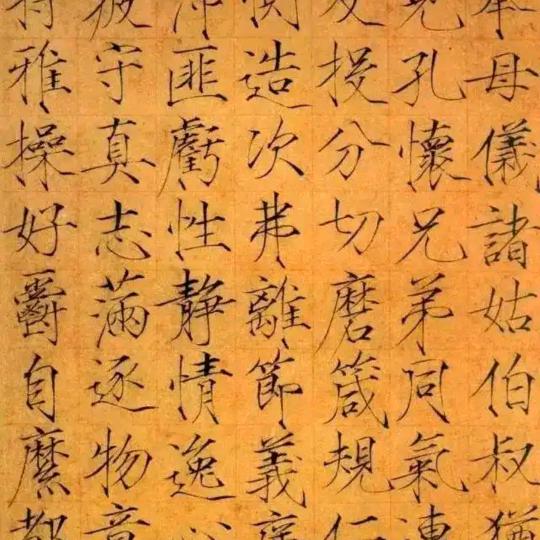 奉母儀諸姑伯叔猶
兒孔懷兄弟同氣連
友投分切磨箴規仁
造次弗離節義廉
沛匪虧性靜情逸心
疲守真志滿逐物意
持雅操好爵自縻都